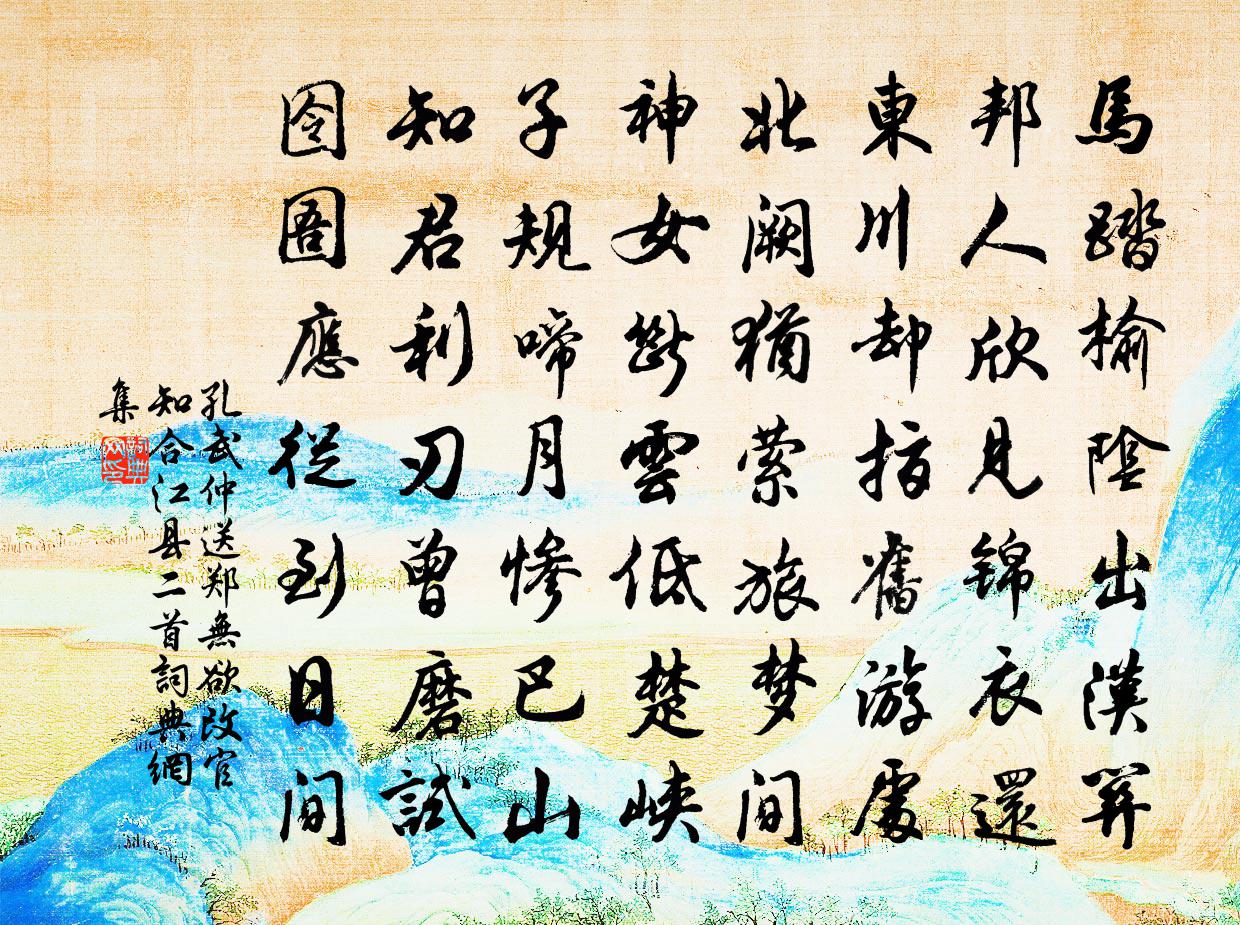 馬踏榆陰出漢關
邦人欣見錦衣還
東川却指舊游處
北闕猶縈旅梦間
神女斷雲低楚峽
子規啼月慘巴山
知君利刃曾磨試
囹圄應從到日間
孔武仲送郑無欲改官
知合江县二首詞典網
集